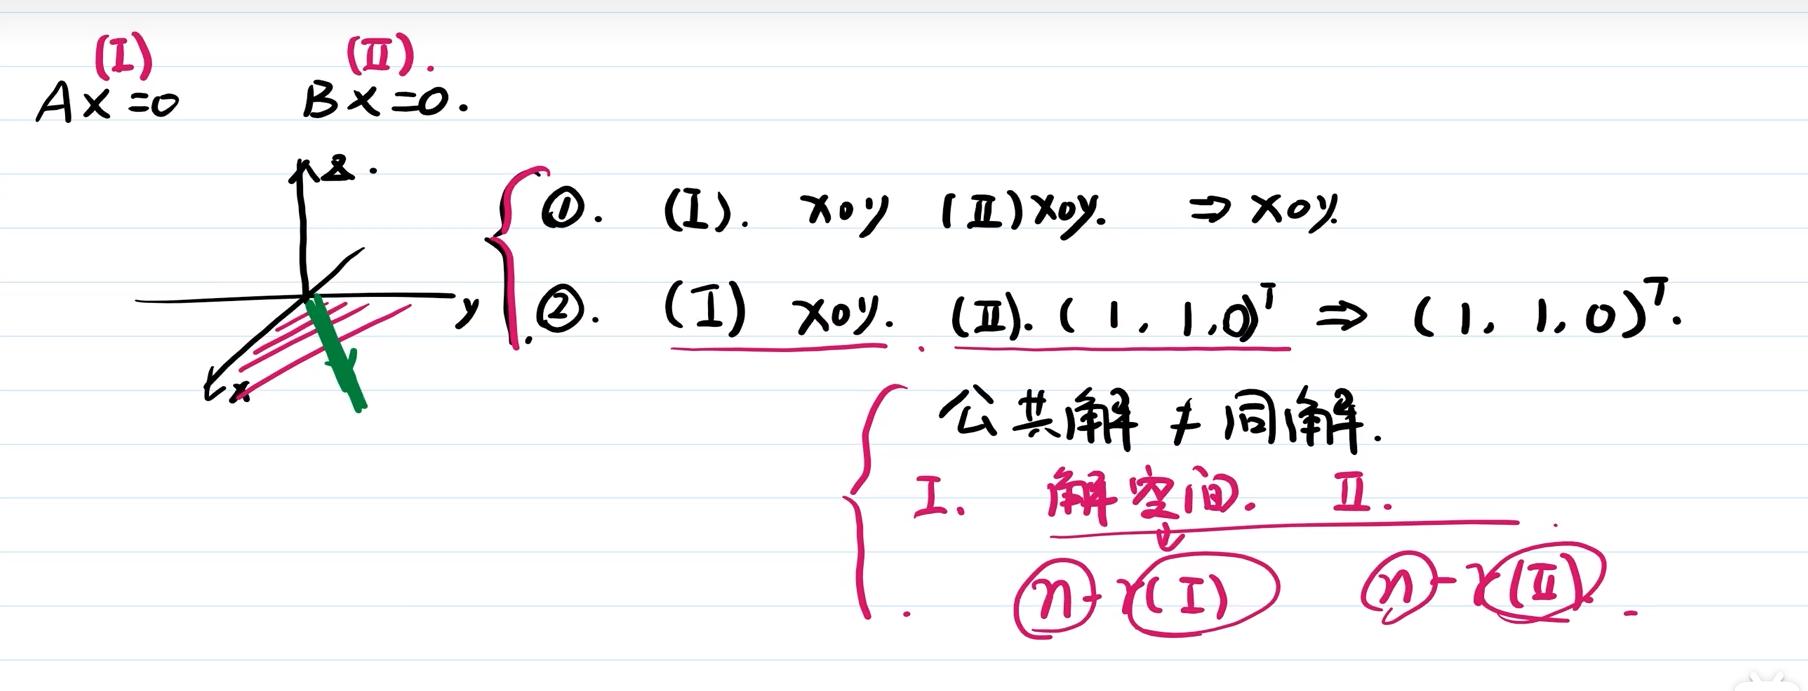 (I) (II).
Ax=0 Bx=0.
z.
y
x
①. (I). xoy (II) xoy. ⇒ xoy.
②. (I) xoy. (II). (1, 1, 0)ᵀ ⇒ (1, 1, 0)ᵀ.
公共解 ≠ 同解.
I. 解空间. II.
n-r(I) n-r(II).